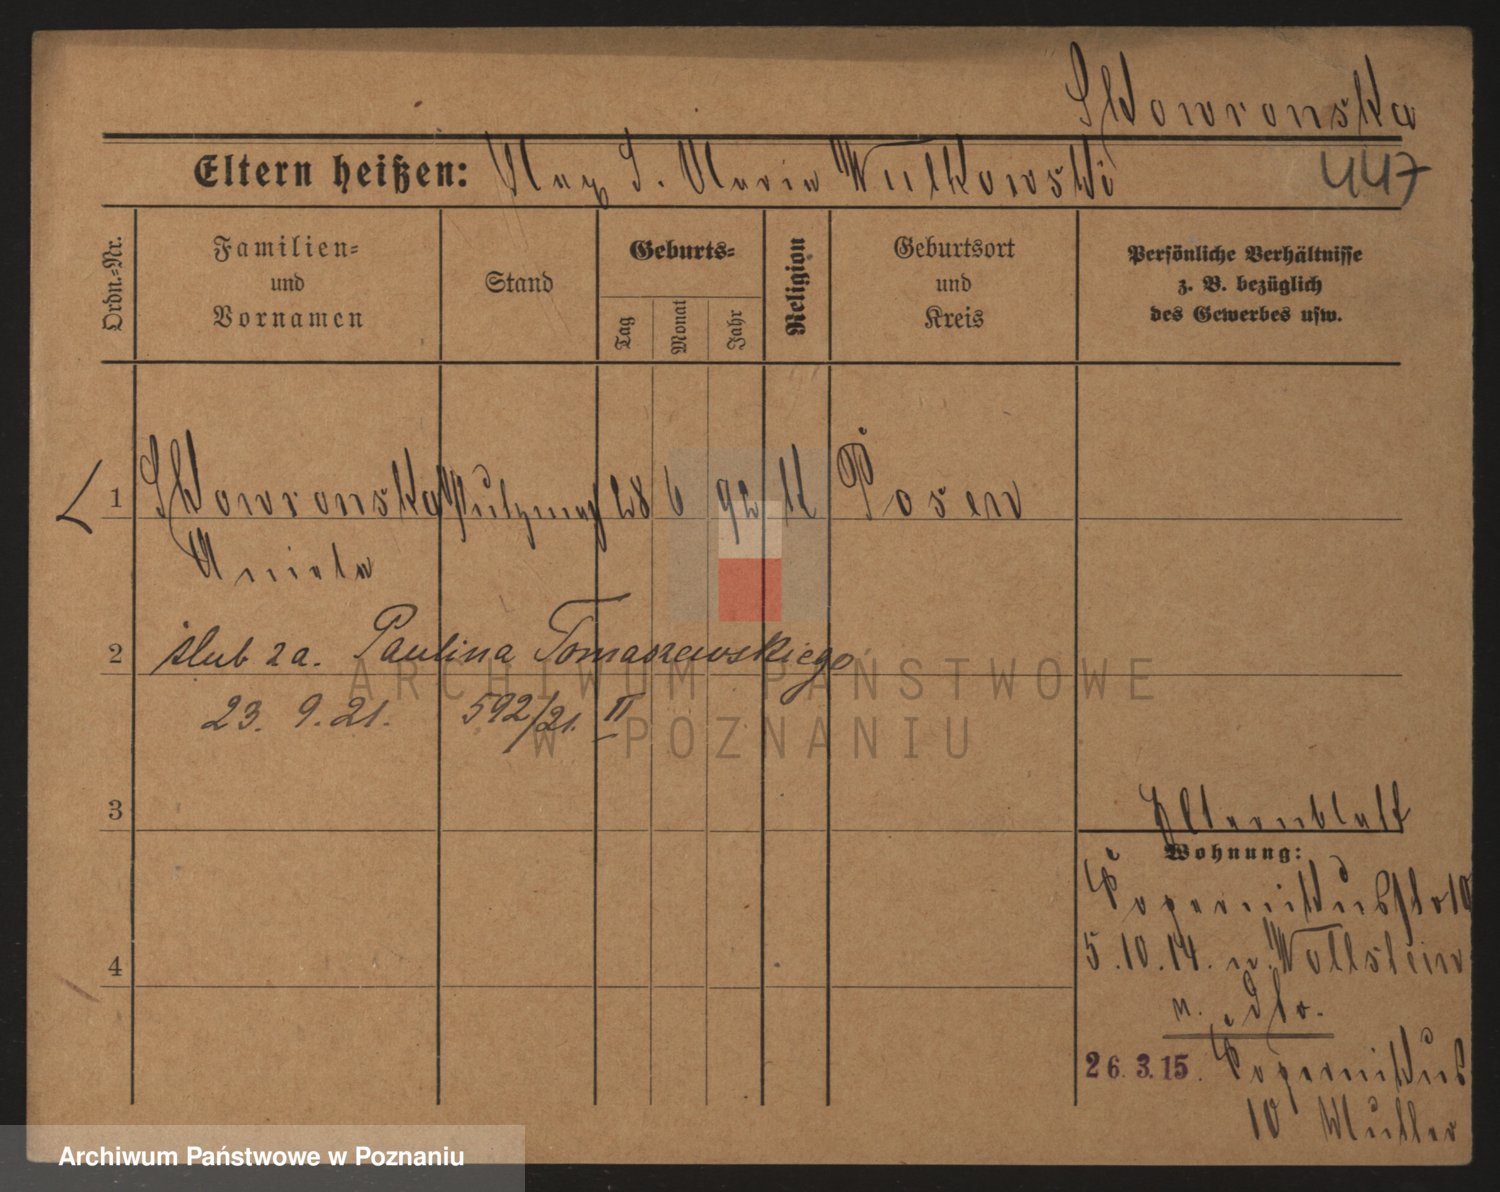 Skowronska
Eltern heißen: Max u. Maria Wutkowski
447
Ordn.=Nr.
Familien=
und
Vornamen
Stand
Geburts=
Tag
Monat
Jahr
Religion
Geburtsort
und
Kreis
Persönliche Verhältnisse
z. B. bezüglich
des Gewerbes usw.
1 Skowronska 28 6 92 K Posen
Aniela
2 ślub za. Paulina Tomaszewskiego
23. 9. 21. 592/21. II
3
Elternblatt
Wohnung:
Copernikusstr 10
4
5.10.14. n. Wollstein
26.3.15. Copernikus
10 Mutter
ARCHIWUM PAŃSTWOWE
W POZNANIU
Archiwum Państwowe w Poznaniu